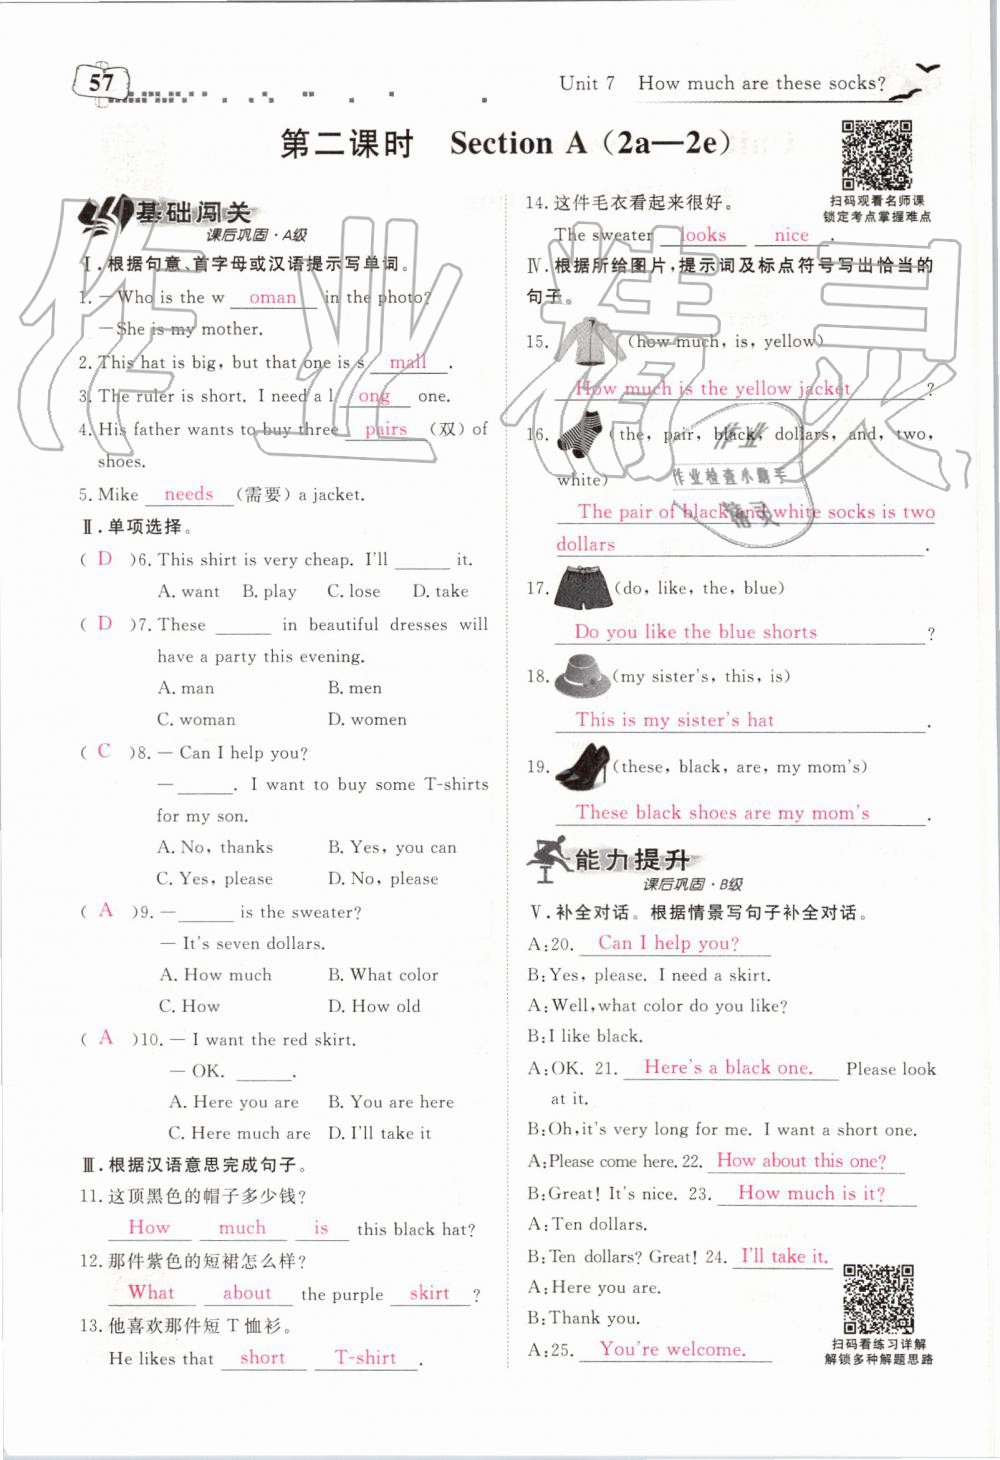 57
Unit 7 How much are these socks?
第二课时 Section A（2a—2e）
基础闯关
课后巩固·A级
Ⅰ.根据句意、首字母或汉语提示写单词。
1.—Who is the w oman in the photo?
—She is my mother.
2.This hat is big, but that one is s mall .
3.The ruler is short. I need a l ong one.
4.His father wants to buy three pairs （双）of
shoes.
5.Mike needs （需要）a jacket.
Ⅱ.单项选择。
( D )6.This shirt is very cheap. I'll ______ it.
A. want B. play C. lose D. take
( D )7.These ______ in beautiful dresses will
have a party this evening.
A. man B. men
C. woman D. women
( C )8.— Can I help you?
—______. I want to buy some T-shirts
for my son.
A. No, thanks B. Yes, you can
C. Yes, please D. No, please
( A )9.—______ is the sweater?
— It's seven dollars.
A. How much B. What color
C. How D. How old
( A )10.— I want the red skirt.
— OK. ______.
A. Here you are B. You are here
C. Here much are D. I'll take it
Ⅲ.根据汉语意思完成句子。
11.这顶黑色的帽子多少钱?
How much is this black hat?
12.那件紫色的短裙怎么样?
What about the purple skirt ?
13.他喜欢那件短 T 恤衫。
He likes that short T-shirt .
14.这件毛衣看起来很好。
The sweater looks nice .
Ⅳ.根据所给图片,提示词及标点符号写出恰当的
句子。
15. (how much, is, yellow)
How much is the yellow jacket ?
16. (the, pair, black, dollars, and, two,
white)
The pair of black and white socks is two
dollars .
17. (do, like, the, blue)
Do you like the blue shorts ?
18. (my sister's, this, is)
This is my sister's hat .
19. (these, black, are, my mom's)
These black shoes are my mom's .
能力提升
课后巩固·B级
Ⅴ.补全对话。根据情景写句子补全对话。
A:20. Can I help you?
B:Yes, please. I need a skirt.
A:Well,what color do you like?
B:I like black.
A:OK. 21. Here's a black one. Please look
at it.
B:Oh,it's very long for me. I want a short one.
A:Please come here. 22. How about this one?
B:Great! It's nice. 23. How much is it?
A:Ten dollars.
B:Ten dollars? Great! 24. I'll take it.
A:Here you are.
B:Thank you.
A:25. You're welcome.
扫码观看名师课
锁定考点掌握难点
扫码看练习详解
解锁多种解题思路
作业精灵
作业
作业检查小助手
精灵